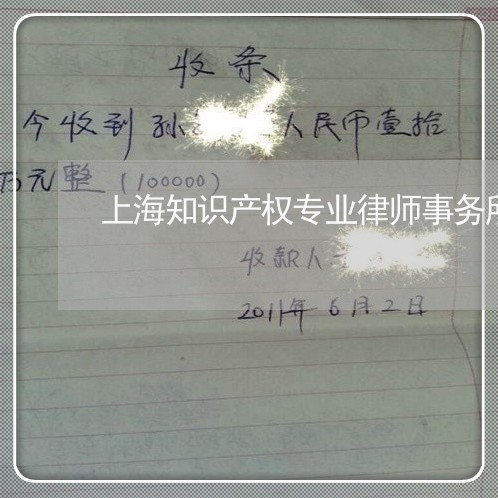 收条
今收到孙 人民币壹拾
万元整(100000)
上海知识产权专业律师事务所
收款人
2011年6月2日